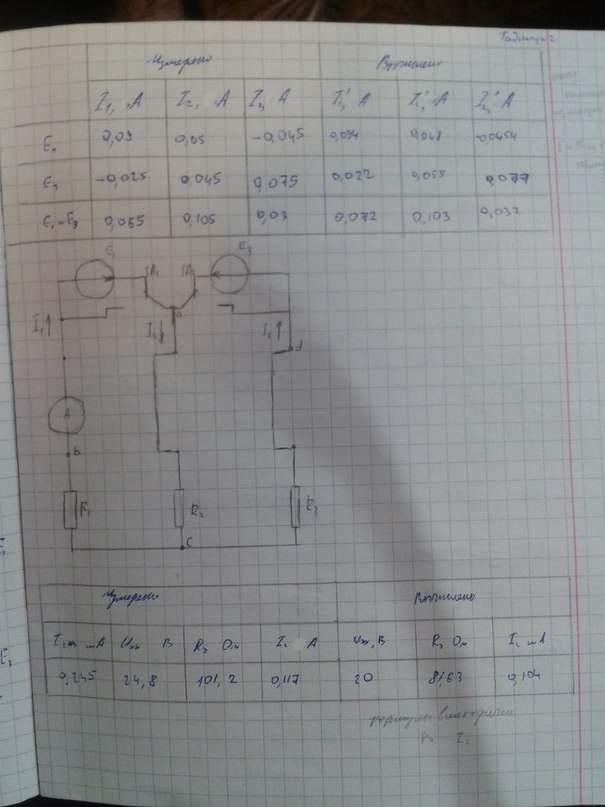 Таблица 2
Измерено Вычислено
I₁, А I₂, А I₃, А I₁' А I₂' А I₃' А
E₁ 0,09 0,05 -0,045 0,094 0,048 -0,0454
E₃ -0,025 0,045 0,075 0,022 0,055 0,077
E₁ E₃ 0,065 0,105 0,03 0,072 0,103 0,032
E₁ E₃
SA₁ SA₃
a
I₁↑ I₂↓ I₃↑
d
A
b
R₁ R₂ R₃
c
Измерено Вычислено
мА Uхх В Rэ Ом I₂ А Uхх, В Rэ Ом I₂ мА
0,245 24,8 101,2 0,117 20 81,63 0,104
формулы
Rэ I₂
E₃